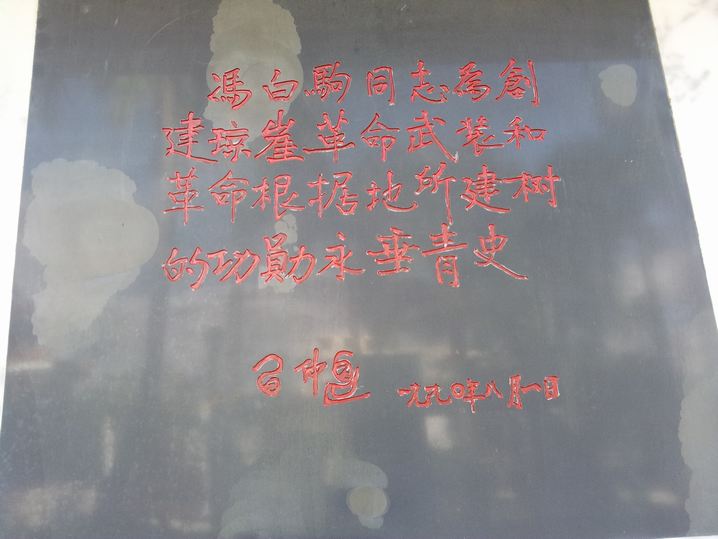 馮白駒同志为創
建琼崖革命武装和
革命根据地所建树
的功勛永垂青史
习仲勋 一九九〇年八月一日